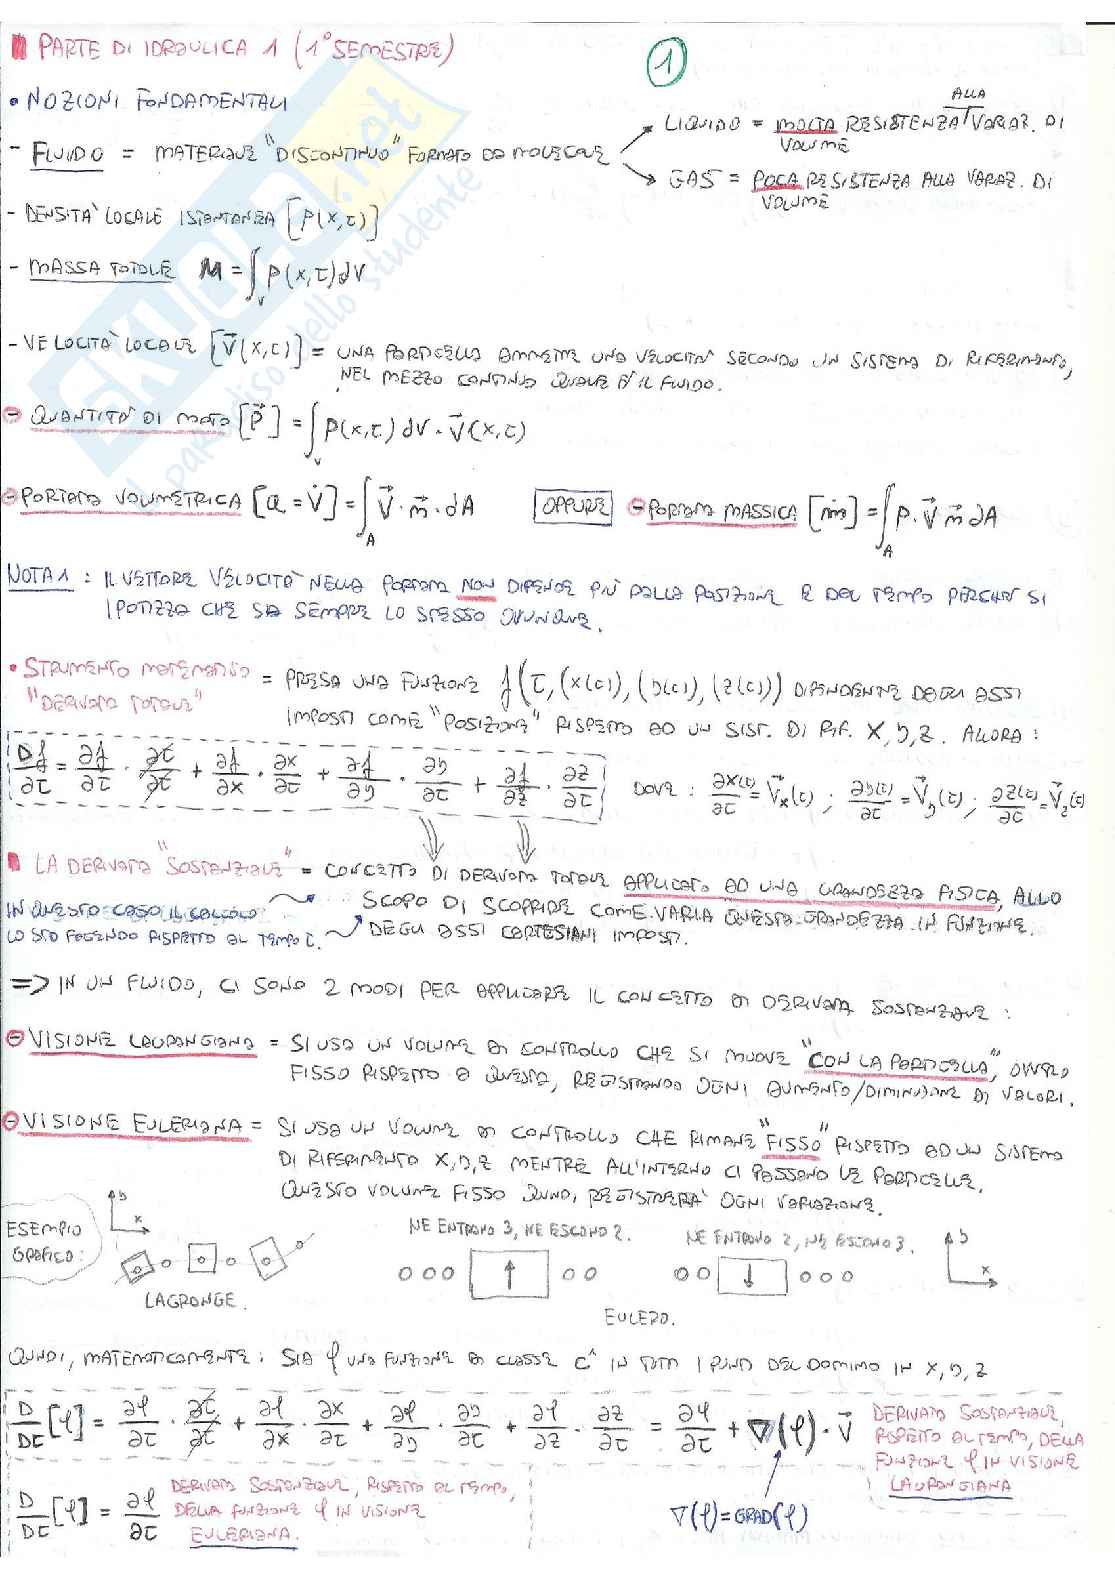 PARTE DI IDRAULICA 1 (1° SEMESTRE)
1
• NOZIONI FONDAMENTALI
- FLUIDO = MATERIALE "DISCONTINUO" FORMATO DA MOLECOLE
LIQUIDO = MOLTA RESISTENZA ALLA VARIAZ. DI VOLUME
GAS = POCA RESISTENZA ALLA VARIAZ. DI VOLUME
- DENSITA' LOCALE ISTANTANEA [ρ(x,τ)]
- MASSA TOTALE M = ∫_V ρ(x,τ)dV
- VELOCITA' LOCALE [V⃗(x,τ)] = UNA PARTICELLA AMMETTE UNA VELOCITA' SECONDO UN SISTEMA DI RIFERIMENTO,
NEL MEZZO CONTINUO QUALE E' IL FLUIDO.
⊖ QUANTITA' DI MOTO [P⃗] = ∫_V ρ(x,τ) dV · V⃗(x,τ)
⊖ PORTATA VOLUMETRICA [Q = V̇] = ∫_A V⃗ · n⃗ · dA OPPURE ⊖ PORTATA MASSICA [ṁ] = ∫_A ρ · V⃗ n⃗ dA
NOTA 1 : IL VETTORE VELOCITA' NELLA PORTATA NON DIPENDE PIU' DALLA POSIZIONE E DAL TEMPO PERCHE' SI
IPOTIZZA CHE SIA SEMPRE LO STESSO OVUNQUE.
• STRUMENTO MATEMATICO = PRESA UNA FUNZIONE f(τ, (x(τ)), (y(τ)), (z(τ))) DIPENDENTE DAGLI ASSI
"DERIVATA TOTALE" IMPOSTI COME "POSIZIONE" RISPETTO AD UN SIST. DI RIF. X, Y, Z. ALLORA :
Df/∂τ = ∂f/∂τ · ∂τ/∂τ + ∂f/∂x · ∂x/∂τ + ∂f/∂y · ∂y/∂τ + ∂f/∂z · ∂z/∂τ DOVE : ∂x(τ)/∂τ = V⃗x(τ) ; ∂y(τ)/∂τ = V⃗y(τ) ; ∂z(τ)/∂τ = V⃗z(τ)
LA DERIVATA "SOSTANZIALE" = CONCETTO DI DERIVATA TOTALE APPLICATO AD UNA GRANDEZZA FISICA, ALLO
SCOPO DI SCOPRIRE COME VARIA QUESTA GRANDEZZA IN FUNZIONE
DEGLI ASSI CARTESIANI IMPOSTI.
IN QUESTO CASO IL CALCOLO
LO STO FACENDO RISPETTO AL TEMPO τ.
=> IN UN FLUIDO, CI SONO 2 MODI PER APPLICARE IL CONCETTO DI DERIVATA SOSTANZIALE :
⊖ VISIONE LAGRANGIANA = SI USA UN VOLUME DI CONTROLLO CHE SI MUOVE "CON LA PARTICELLA", OVVERO
FISSO RISPETTO A QUESTA, REGISTRANDO OGNI AUMENTO/DIMINUZIONE DI VALORI.
⊖ VISIONE EULERIANA = SI USA UN VOLUME DI CONTROLLO CHE RIMANE "FISSO" RISPETTO AD UN SISTEMA
DI RIFERIMENTO X, Y, Z MENTRE ALL'INTERNO CI PASSANO LE PARTICELLE.
QUESTO VOLUME FISSO QUINDI, REGISTRERA' OGNI VARIAZIONE.
ESEMPIO
GRAFICO :
y
x
LAGRANGE.
NE ENTRANO 3, NE ESCONO 2.
NE ENTRANO 2, NE ESCONO 3.
y
x
EULERO.
QUINDI, MATEMATICAMENTE : SIA φ UNA FUNZIONE DI CLASSE C^1 IN TUTTI I PUNTI DEL DOMINIO IN X, Y, Z
D/Dτ [φ] = ∂φ/∂τ · ∂τ/∂τ + ∂φ/∂x · ∂x/∂τ + ∂φ/∂y · ∂y/∂τ + ∂φ/∂z · ∂z/∂τ = ∂φ/∂τ + ∇(φ) · V⃗
DERIVATA SOSTANZIALE,
RISPETTO AL TEMPO, DELLA
FUNZIONE φ IN VISIONE
LAGRANGIANA
D/Dτ [φ] = ∂φ/∂τ
DERIVATA SOSTANZIALE, RISPETTO AL TEMPO,
DELLA FUNZIONE φ IN VISIONE
EULERIANA.
∇(φ) = GRAD(φ)
SKUOLA.net
il paradiso dello studente